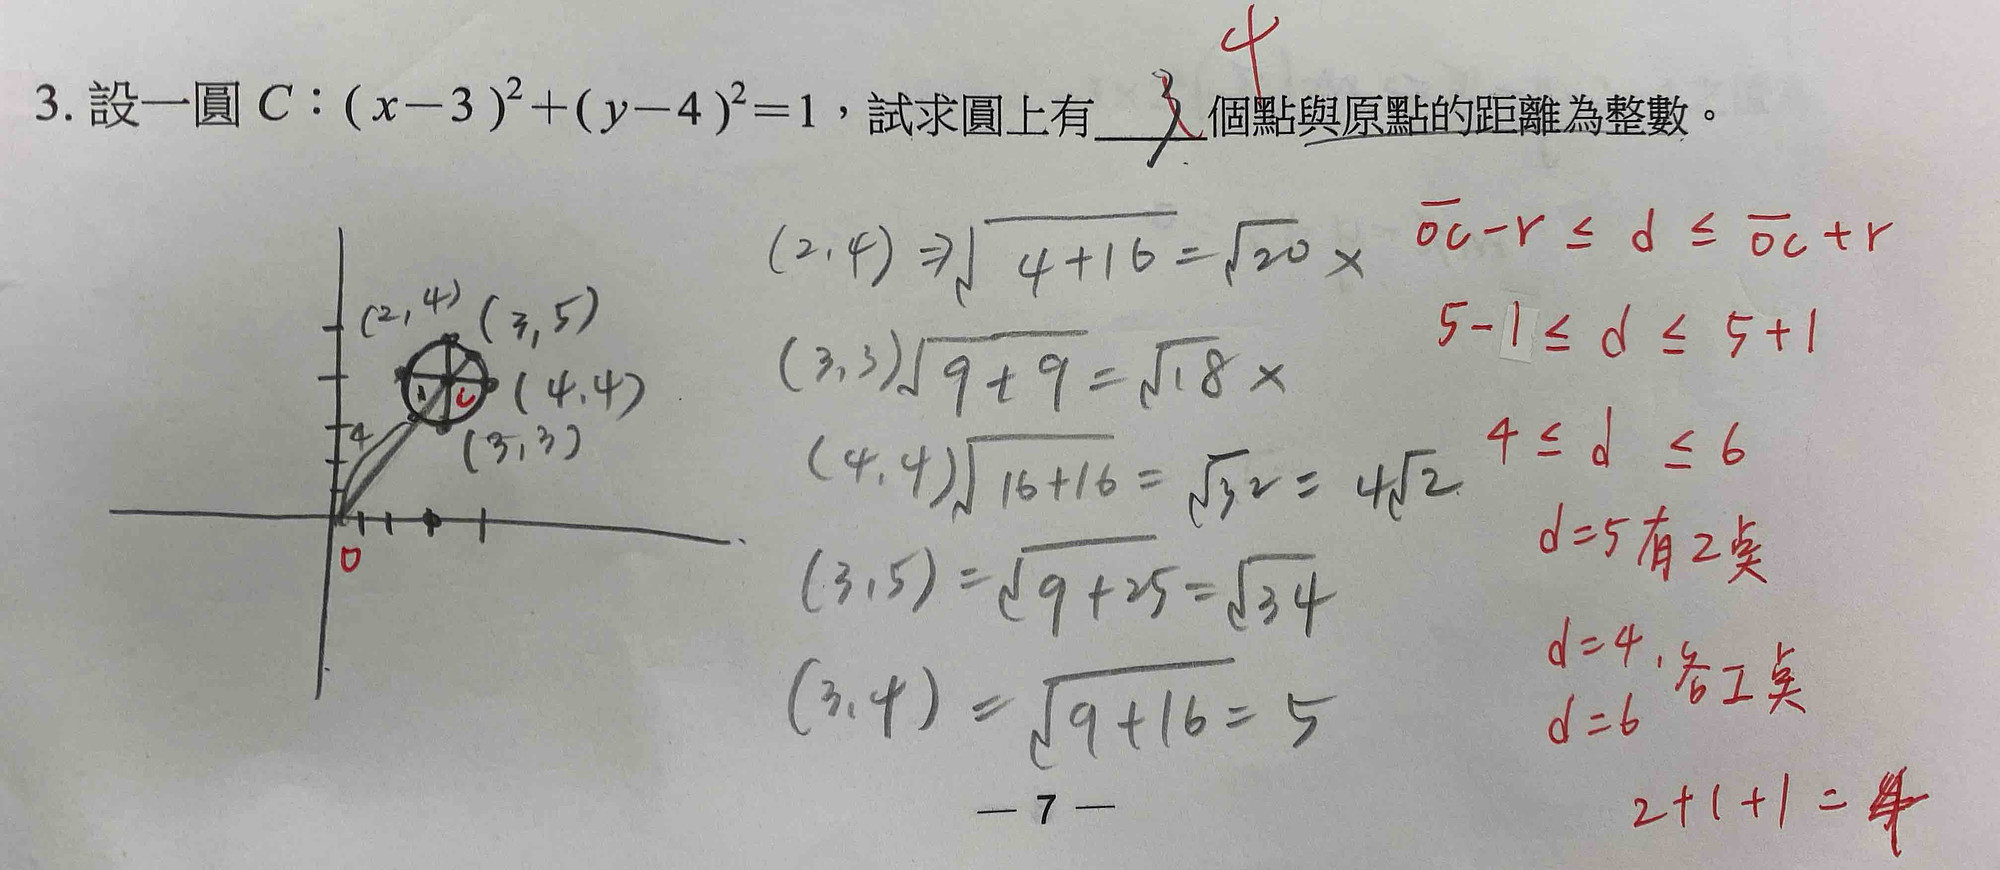 4
3. 設一圓 C：(x－3)²＋(y－4)²＝1，試求圓上有 3 個點與原點的距離為整數。
(2,4) (3,5)
(4,4)
C
(3,3)
4
O
(2,4) ⇒ √4+16 = √20 ×
(3,3) √9+9 = √18 ×
(4,4) √16+16 = √32 = 4√2
(3,5) = √9+25 = √34
(3,4) = √9+16 = 5
OC-r ≤ d ≤ OC+r
5-1 ≤ d ≤ 5+1
4 ≤ d ≤ 6
d=5有2點
d=4, 各1點
d=6
2+1+1=4
— 7 —